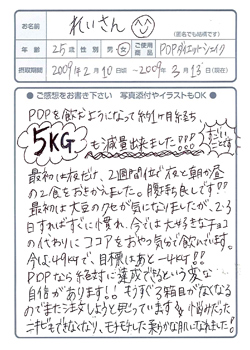 お名前 れいさん (匿名でも結構です)
年齢 25歳 性別 男・女 ご使用商品 POPダイエットシェイク
摂取期間 2009年2月10日頃 ～2009年3月13日(現在)
●ご感想をお書き下さい 写真添付やイラストもOK●
POPを飲むようになって約1ヶ月経ち、
5KG
も減量出来ました!!!
すごいことです
最初は夜だけ、2週間位で夜と朝か昼
の2食をおきかえました。腹もち良しです!!
最初は大豆のクセが気になりましたが、2・3
日すればすぐに慣れ、今では大好きなチョコ
の代わりにココアをおやつ気分で飲んでいます。
今は49kgで、目標はあと-4kg!!
POPなら絶対に達成できるという変な
自信があります!!もうすぐ3箱目がなくなる
のでまた注文しようと思っています 悩みだった
ニキビもできなくなり、モチモチした柔らかな肌になれました!